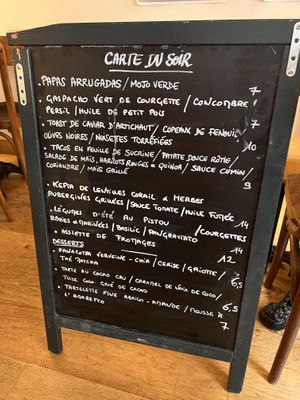 CARTE DU SOIR
PAPAS ARRUGADAS / MOJO VERDE 7
• GASPACHO VERT DE COURGETTE / CONCOMBRE /
PERSIL / HUILE DE PETIT POIS 7
• TOAST DE CAVIAR D'ARTICHAUT / COPEAUX DE FENOUIL
OLIVES NOIRES / NOISETTES TORRÉFIÉES 10
• TACOS EN FEUILLE DE SUCRINE / PATATE DOUCE RÔTIE /
SALADE DE MAÏS, HARICOTS ROUGES & QUINOA / SAUCE CUMIN /
CORIANDRE / MAÏS GRILLÉ 9
• KEFTA DE LENTILLES CORAIL & HERBES
AUBERGINES GRILLÉES / SAUCE TOMATE / HUILE FUMÉE 14
• LÉGUMES D'ÉTÉ AU PISTOU / COURGETTES
RÔTIES & MARINÉES / BASILIC / PANGRATTATO 14
• ASSIETTE DE FROMAGES 12
DESSERTS
• PANACOTTA VERVEINE - CHIA / CERISE / GRIOTTE /
THÉ MATCHA 6,5
• TARTE AU CACAO CRU / CARAMEL DE NOIX DE COCO /
TUILE COCO, GRUÉ DE CACAO 6,5
• TARTELETTE FINE ABRICOT - AMANDE / MOUSSE À
L'AMARETTO 7